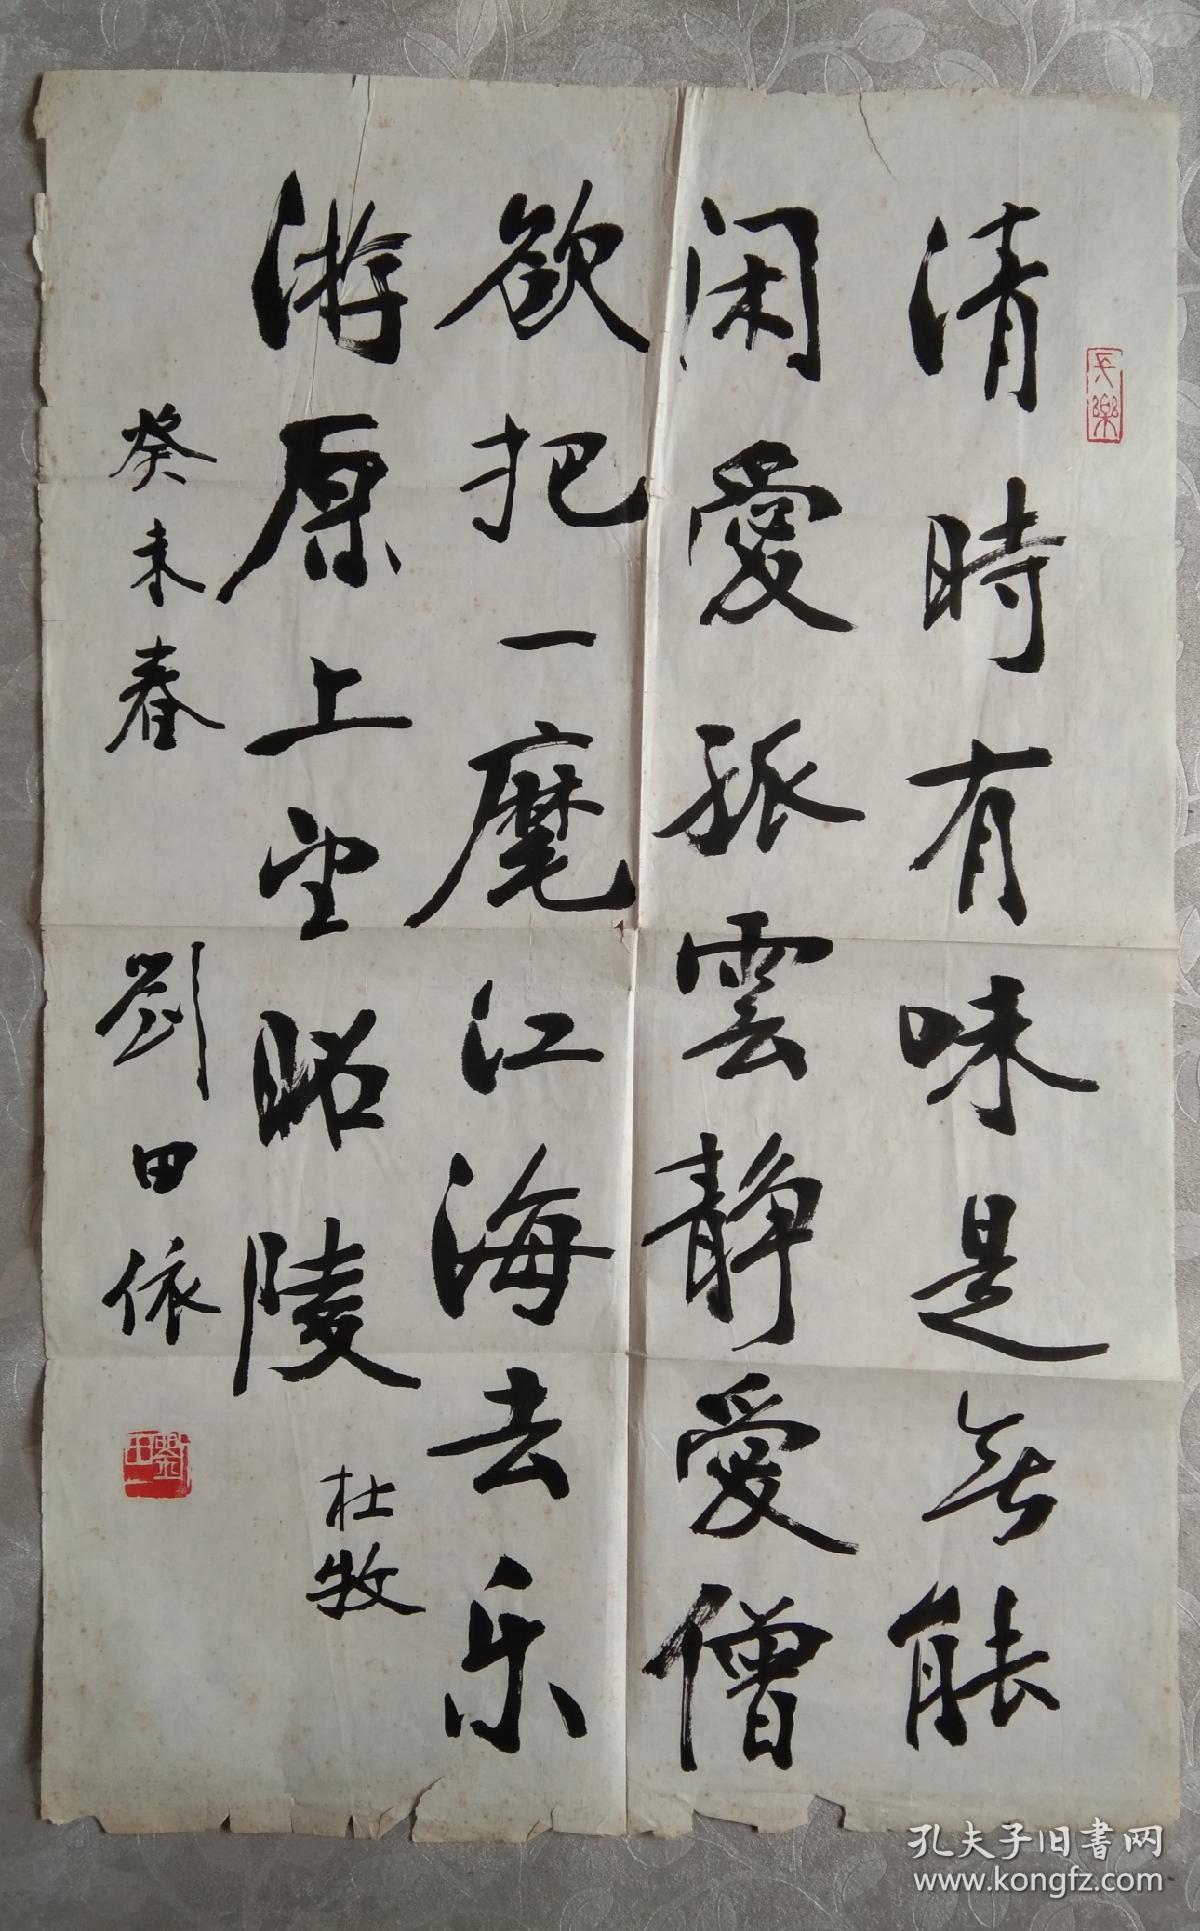 清時有味是无能
闲愛孤雲静愛僧
欲把一麾江海去乐
游原上望昭陵
杜牧
癸未春
劉田依
長樂
孔夫子旧书网
www.kongfz.com